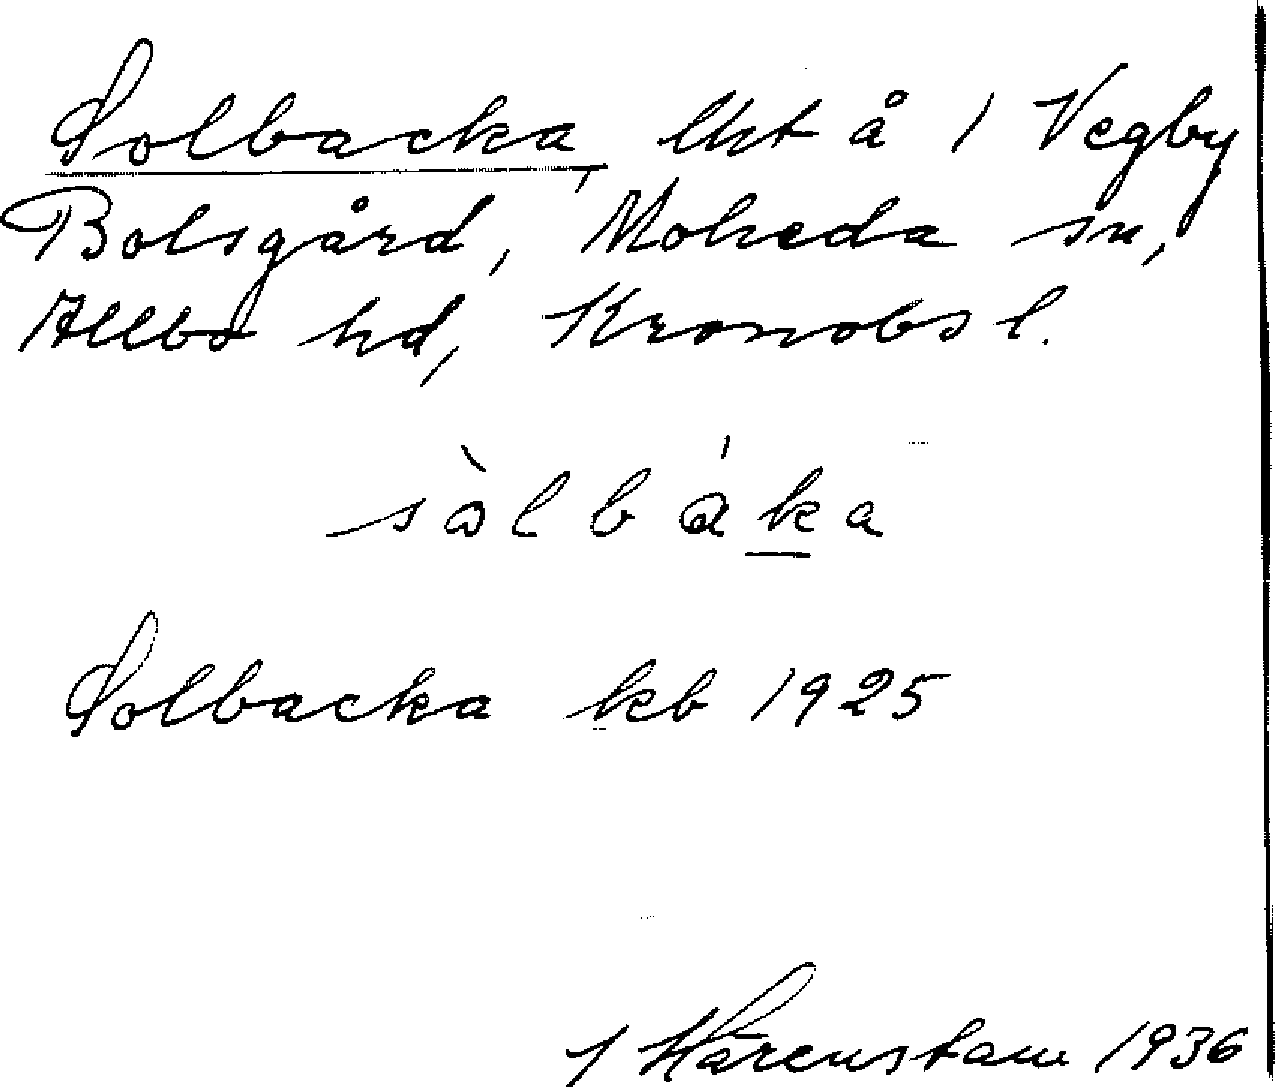 Solbacka, lht å 1 Vegby
Bolsgård, Moheda sn,
Allbo hd, Kronobs l.
sòlbáka
Solbacka kb 1925
Härenstam 1936